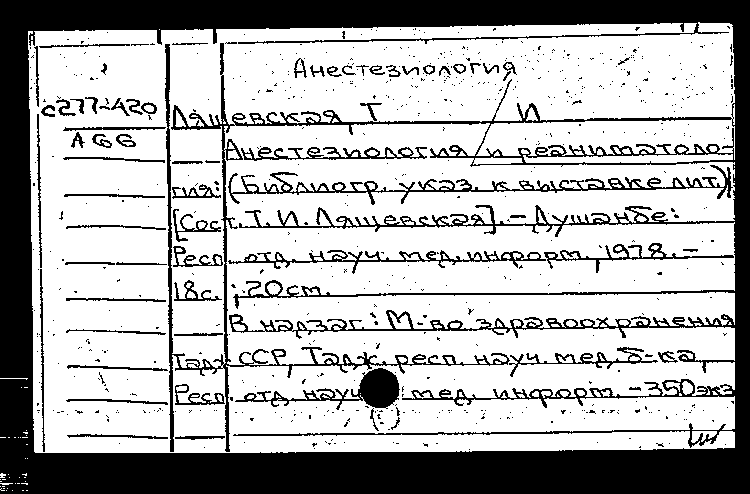 Анестезиология
с277-420
Лящевская, Т И
А 66
Анестезиология и реаниматоло=
гия: (Библиогр. указ. к выставке лит.)
[Сост. Т. И. Лящевская]. - Душанбе:
Респ. отд. науч. мед. информ., 1978. -
18с. ; 20см.
В надзаг.: М-во здравоохранения
Тадж ССР, Тадж. респ. науч. мед. б-ка,
Респ. отд. науч мед. информ. - 350экз